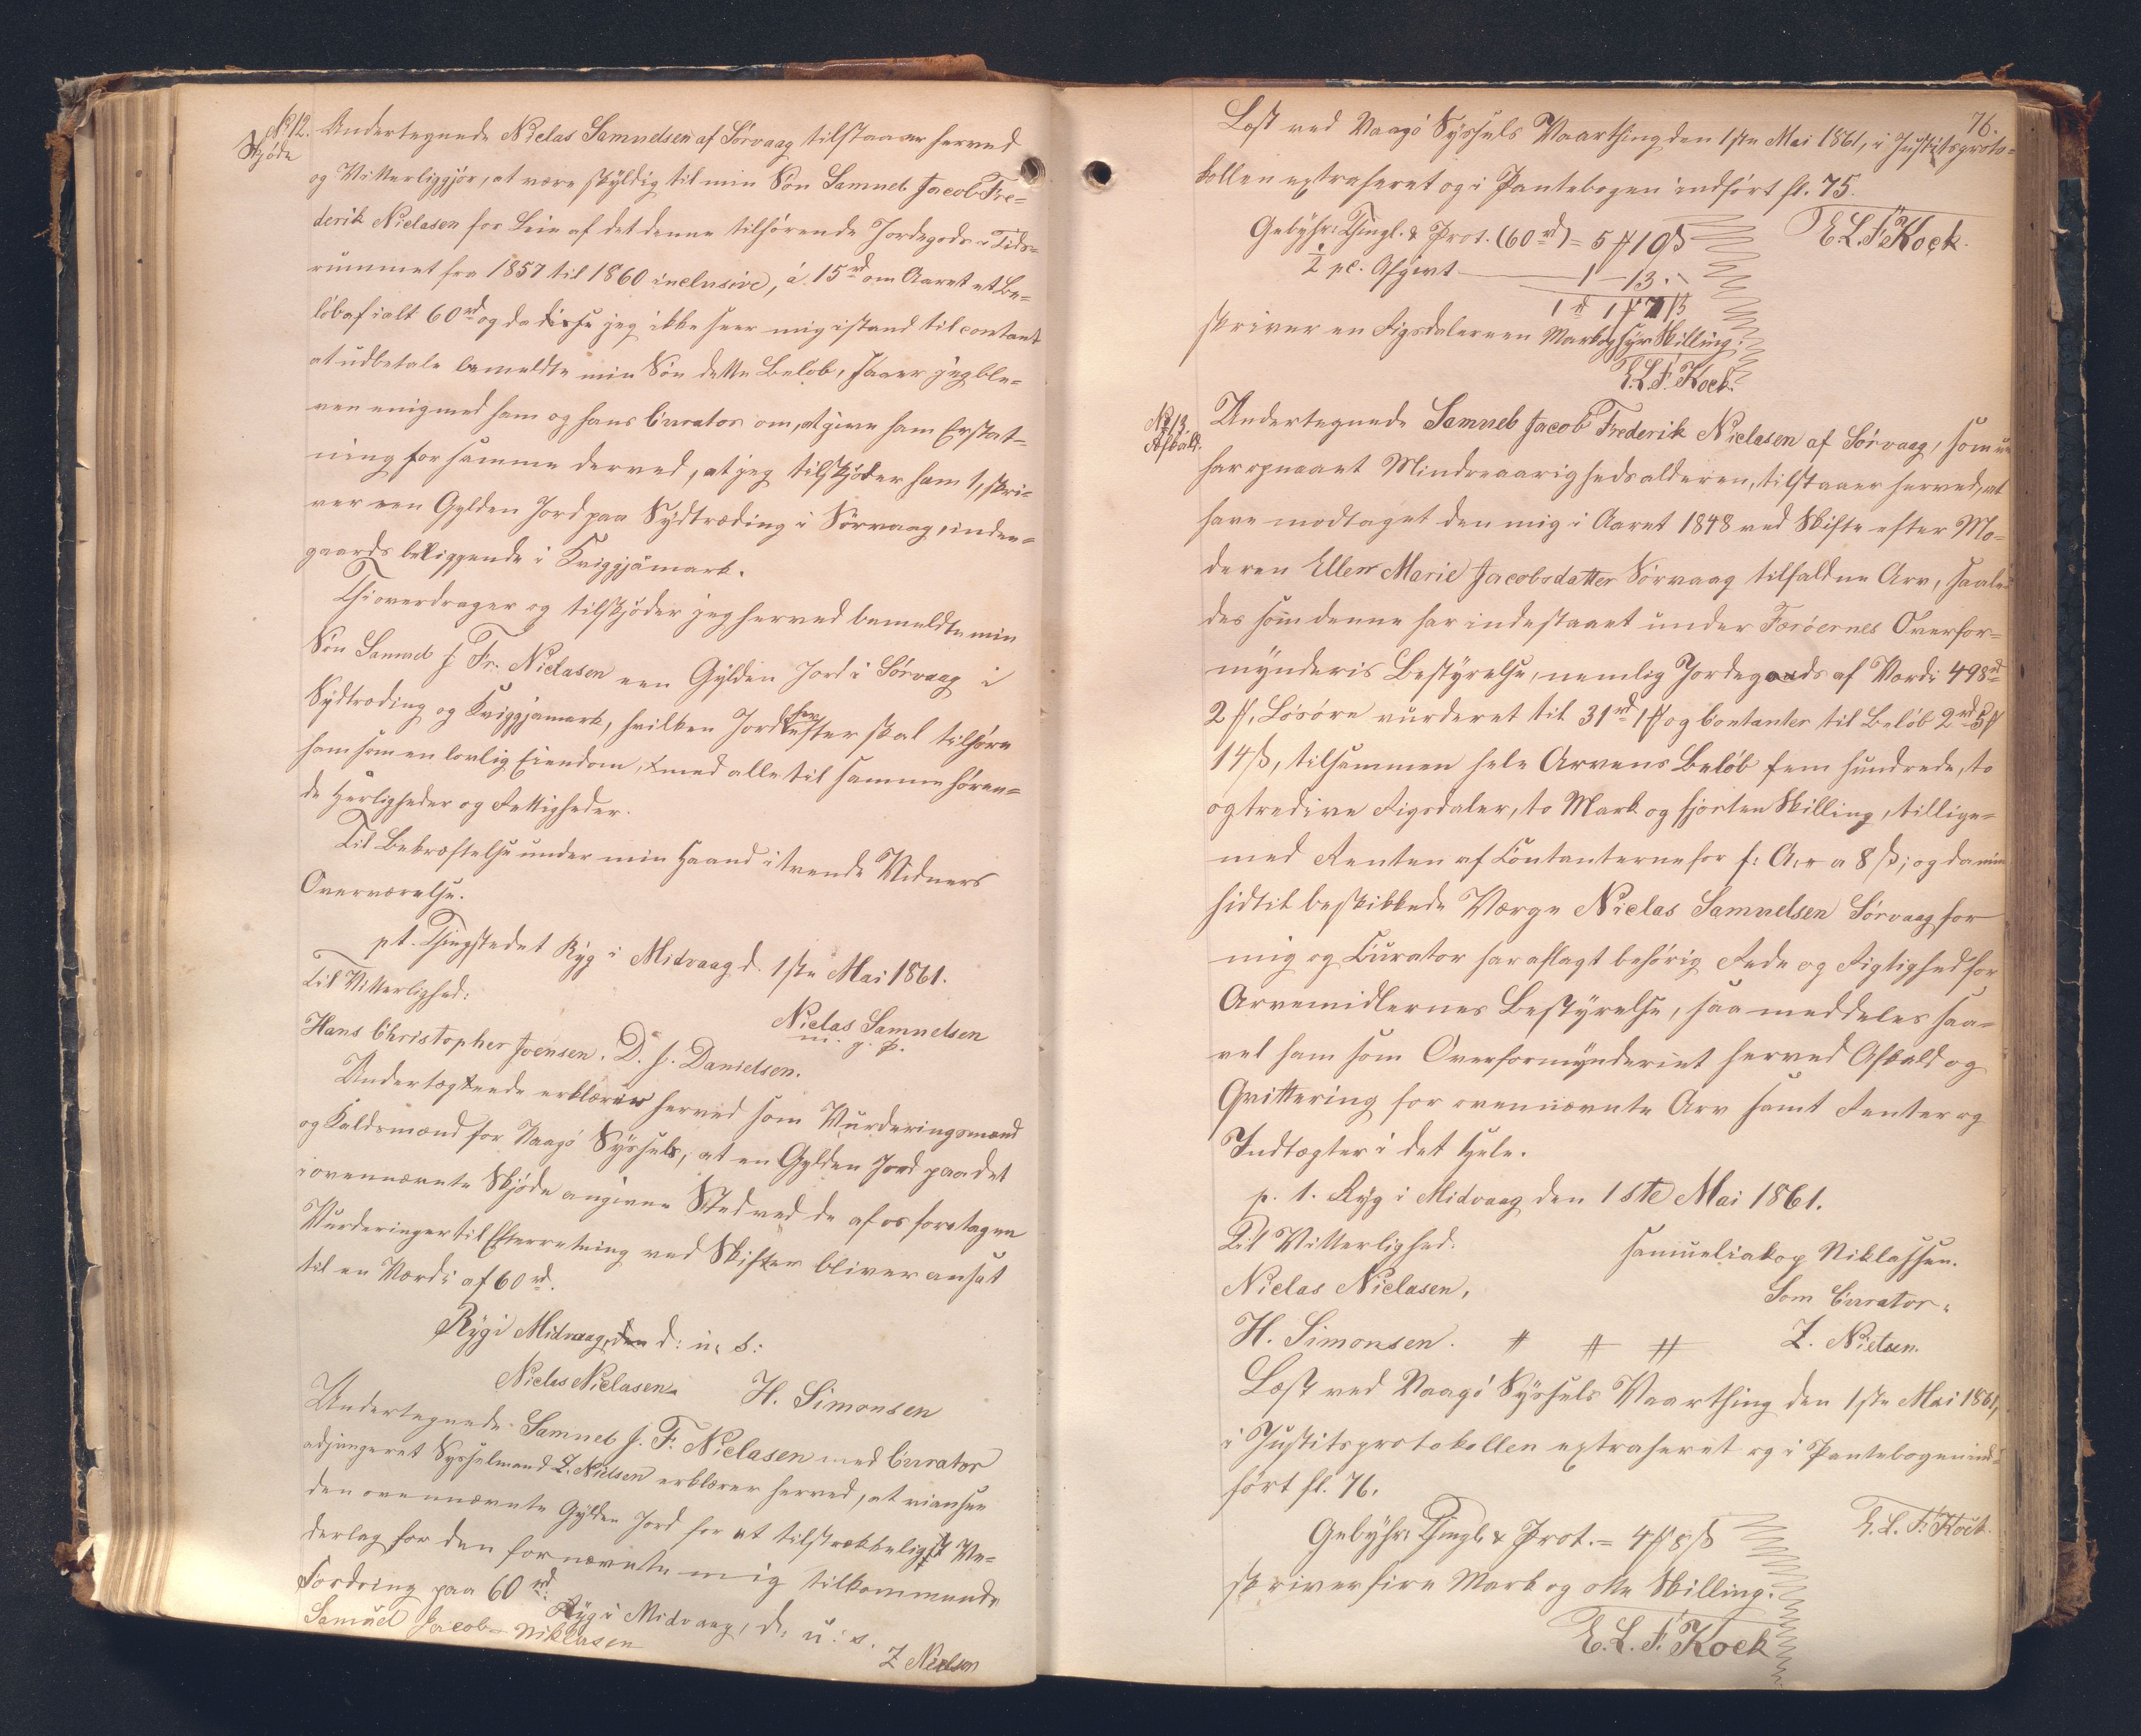 No 12. Undertegnede Niclas Samuelsen af Sørvaag tilstaaer herved
Skjøde
og Vitterliggjør, at være skyldig til min Søn Samuel Jacob Fre=
derik Niclasen for Leie af det denne tilhørende Jordegods i Tids=
rummet fra 1857 til 1860 inclusive, á 15 rd om Aaret et Be=
løb af ialt 60 rd og da disse jeg ikke seer mig istand til contant
at udbetale bemeldte min Søn dette Beløb, saa er jeg ble=
ven enig med ham og hans Curator om, at give ham Erstat=
ning for samme derved, at jeg tilskjøder ham 1, skri=
ver een Gylden Jord paa Sydtræding i Sørvaag, inden=
gaards beliggende i Kviggjámark.
Thi overdrager og tilskjøder jeg herved bemeldte min
Søn Samuel J. Fr. Niclasen een Gylden Jord i Sørvaag i
Sydtræding og Kviggjamark, hvilken Jord herefter skal tilhøre
ham som en lovlig Eiendom, med alle til samme høren=
de Herligheder og Rettigheder.
Til Bekræftelse under min Haand i tvende Vidners
Overværelse.
pt. Thingstedet Ryg i Midvaag d. 1ste Mai 1861.
Til Vitterlighed:
Niclas Samuelsen
m. g. P.
Hans Christopher Joensen. D. J. Danielsen.
Undertegnede erklærer herved som Vurderingsmænd
og Kaldsmænd for Vaagø Syssel, at en Gylden Jord paa det
i ovennævnte Skjøde angivne Sted ved de af os foretagen
Vurderinger til Efterretning ved Skifter bliver ansat
til en Værdi af 60 rd.
Ryg i Midvaag, den d: u: s:
Niclas Niclasen. H. Simonsen
Undertegnede Samuel J. F. Niclasen med Curator
adjungeret Sysselmand Z. Nielsen erklærer herved, at vi ansee
den ovennævnte Gylden Jord for at tilstrækkeligt Ve=
derlag for den fornævnte mig tilkommende
Fordring paa 60 rd.
Ryg i Midvaag, d. u. s.
Samuel Jacob Niklasen
Z Nielsen
76.
Læst ved Vaagø Syssels Vaarthing den 1ste Mai 1861, i Justitsproto=
kollen extraheret og i Pantebogen indført fl. 75.
E. L. F. Kock.
Gebyhr: Thingl. & Prot. (60 rd) = 5 ℳ 10 ß
½ pc. Afgivt 1 - 13.
1 rd 1 ℳ 7 ß
skriver en Rigsdaler een Mark og syv Skilling.
E. L. F. Kock.
No 13.
Afkald.
Undertegnede Samuel Jacob Frederik Niclasen af Sørvaag, som nu
har opnaaet Mindreaarighedsalderen, tilstaaer herved, at
have modtaget den mig i Aaret 1848 ved Skifte efter Mo=
deren Ellen Marie Jacobsdatter Sørvaag tilfaldne Arv, saale=
des som denne har indestaaet under Færøernes Overfor=
mynderis Bestyrelse, nemlig Jordegods af Værdi 498 rd
2 ℳ, Løsøre vurderet til 31 rd 1 ℳ og Contanter til Beløb 2 rd 5 ℳ
14 ß, tilsammen hele Arvens Beløb fem hundrede, to
og tredive Rigsdaler, to Mark og fjorten Skilling, tillige=
med Renten af Contanterne for f: A. a 8 ß; og da min
hidtil beskikkede Værge Niclas Samuelsen Sørvaag for
mig og Curator har aflagt behørig Rede og Rigtighed for
Arvemidlernes Bestyrelse, saa meddeles saa=
vel ham som Overformynderiet herved Afkald og
Qvittering for ovennævnte Arv samt Renter og
Indtægter i det Hele.
p. t. Ryg i Midvaag den 1ste Mai 1861.
Til Vitterlighed.
Samueliakop Niklassen.
Niclas Niclasen,
Som Curator.
H. Simonsen.
Z. Nielsen.
Læst ved Vaagø Syssels Vaarthing den 1ste Mai 1861,
i Justitsprotokollen extraheret og i Pantebogen ind=
ført fl. 76.
E. L. F. Kock.
Gebyhr: Thingl. & Prot. = 4 ℳ 8 ß
skriver fire Mark og otte Skilling.
E. L. F. Kock